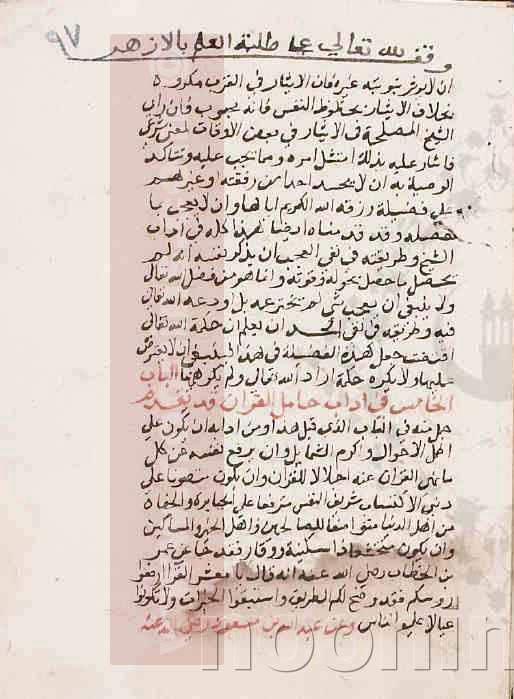 ٩٧
وقف لله تعالى على طلبة العلم بالازهر
ان لا يوثر بنوبته غيره فان الايثار في القرب مكروه
بخلاف الايثار بحظوظ النفس فانه محبوب فان راى
الشيخ المصلحة في الايثار في بعض الاوقات لمعنى شرعى
فاشار عليه بذلك امتثل امره ومما يجب عليه ويتاكد
الوصية به ان لا يحسد احدا من رفقته او غيرهم
على فضيلة رزقه الله الكريم اياها وان لا يعجب بما
حصله وقد قدمناه ايضاح هذا كله في اداب
الشيخ وطريقته في نفي العجب ان يذكر نفسه انه لم
يحصل ما حصل بحوله وقوته وانما هو من فضل الله تعالى
ولا ينبغي ان يعجب بشي لم يخترعه بل اودعه الله تعالى
فيه وطريقه في نفي الحسد ان يعلم ان حكمة الله تعالى
اقتضت جعل هذه الفضيلة في هذا فينبغي ان لا يعترض
عليها ولا يكره حكمة اراد الله تعالى ولم يكرهها الباب
الخامس في اداب حامل القران قد تقدم
جمل منه في الباب الذي قبل هذا ومن ادابه ان يكون على
اكمل الاحوال واكرم الشمايل وان يرفع نفسه عن كل
ما نهى القران عنه اجلالا للقران وان يكون مصونا عن
دني الاكتساب شريف النفس مترفعا على الجبابرة والجفاة
من اهل الدنيا متواضعا للصالحين واهل الخير والمساكين
وان يكون متخشعا ذا سكينة ووقار فقد جا عن عمر
بن الخطاب رضي الله عنه انه قال يا معشر القرا ارفعوا
روسكم فقد وضح لكم الطريق واستبقوا الخيرات ولا تكونوا
عيالا على الناس وعن عبد الله بن مسعود رضي الله عنه
noorlib